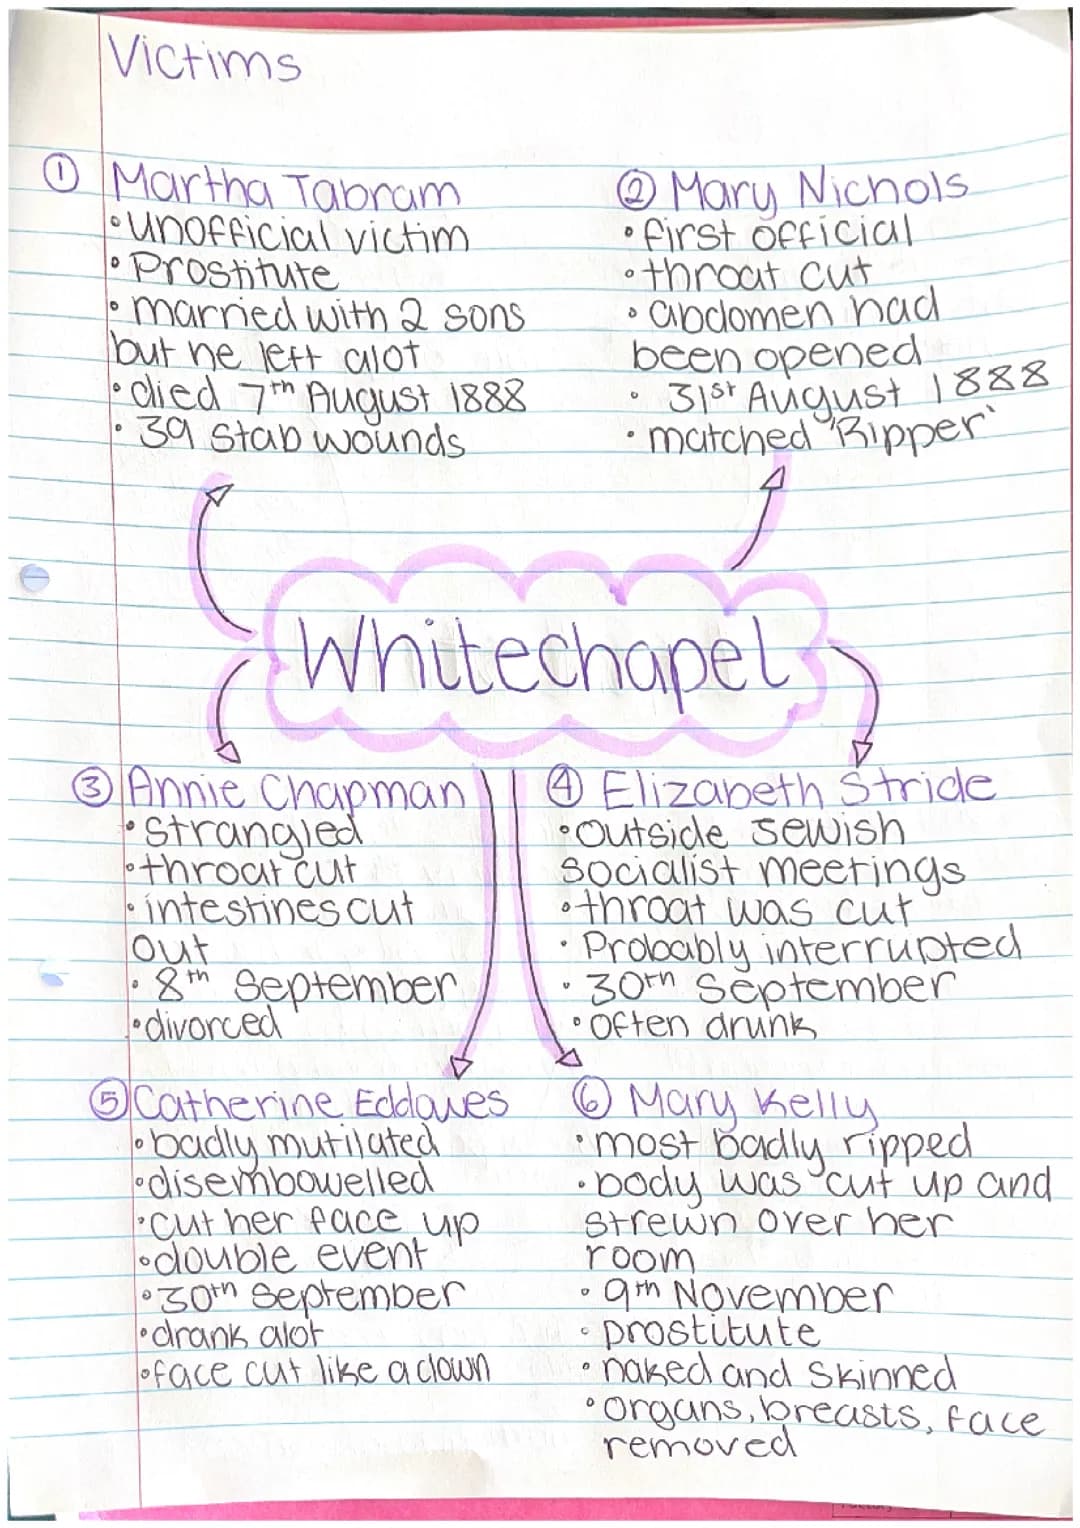 Victims
① Martha Tabram
• unofficial victim
• Prostitute
• married with 2 sons
but he left alot
• died 7th August 1888
• 39 stab wounds
② Mary Nichols
• first official
• throat cut
• abdomen had
been opened
• 31st August 1888
• matched 'Ripper'
Whitechapel
③ Annie Chapman
• strangled
• throat cut
• intestines cut
out
• 8th September
• divorced
④ Elizabeth Stride
• Outside Jewish
socialist meetings
• throat was cut
• Probably interrupted
• 30th September
• Often drunk
⑤ Catherine Eddowes
• badly mutilated
• disembowelled
• cut her face up
• double event
• 30th September
• drank alot
• face cut like a clown
⑥ Mary Kelly
• most badly ripped
• body was cut up and
strewn over her
room
• 9th November
• prostitute
• naked and skinned
• organs, breasts, face
removed